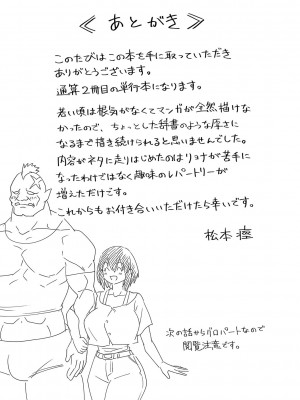 《あとがき》
このたびはこの本を手に取っていただき
ありがとうございます。
通算2冊目の単行本になります。
若い頃は根気がなくてマンガが全然描けな
かったので、ちょっとした辞書のような厚さに
なるまで描き続けられると思いませんでした。
内容がネタに走りはじめたのはリョナが苦手に
なったわけではなく趣味のレパートリーが
増えただけです。
これからもお付き合いいただけたら幸いです。
松本痙
次の話からグロパートなので
閲覧注意です。